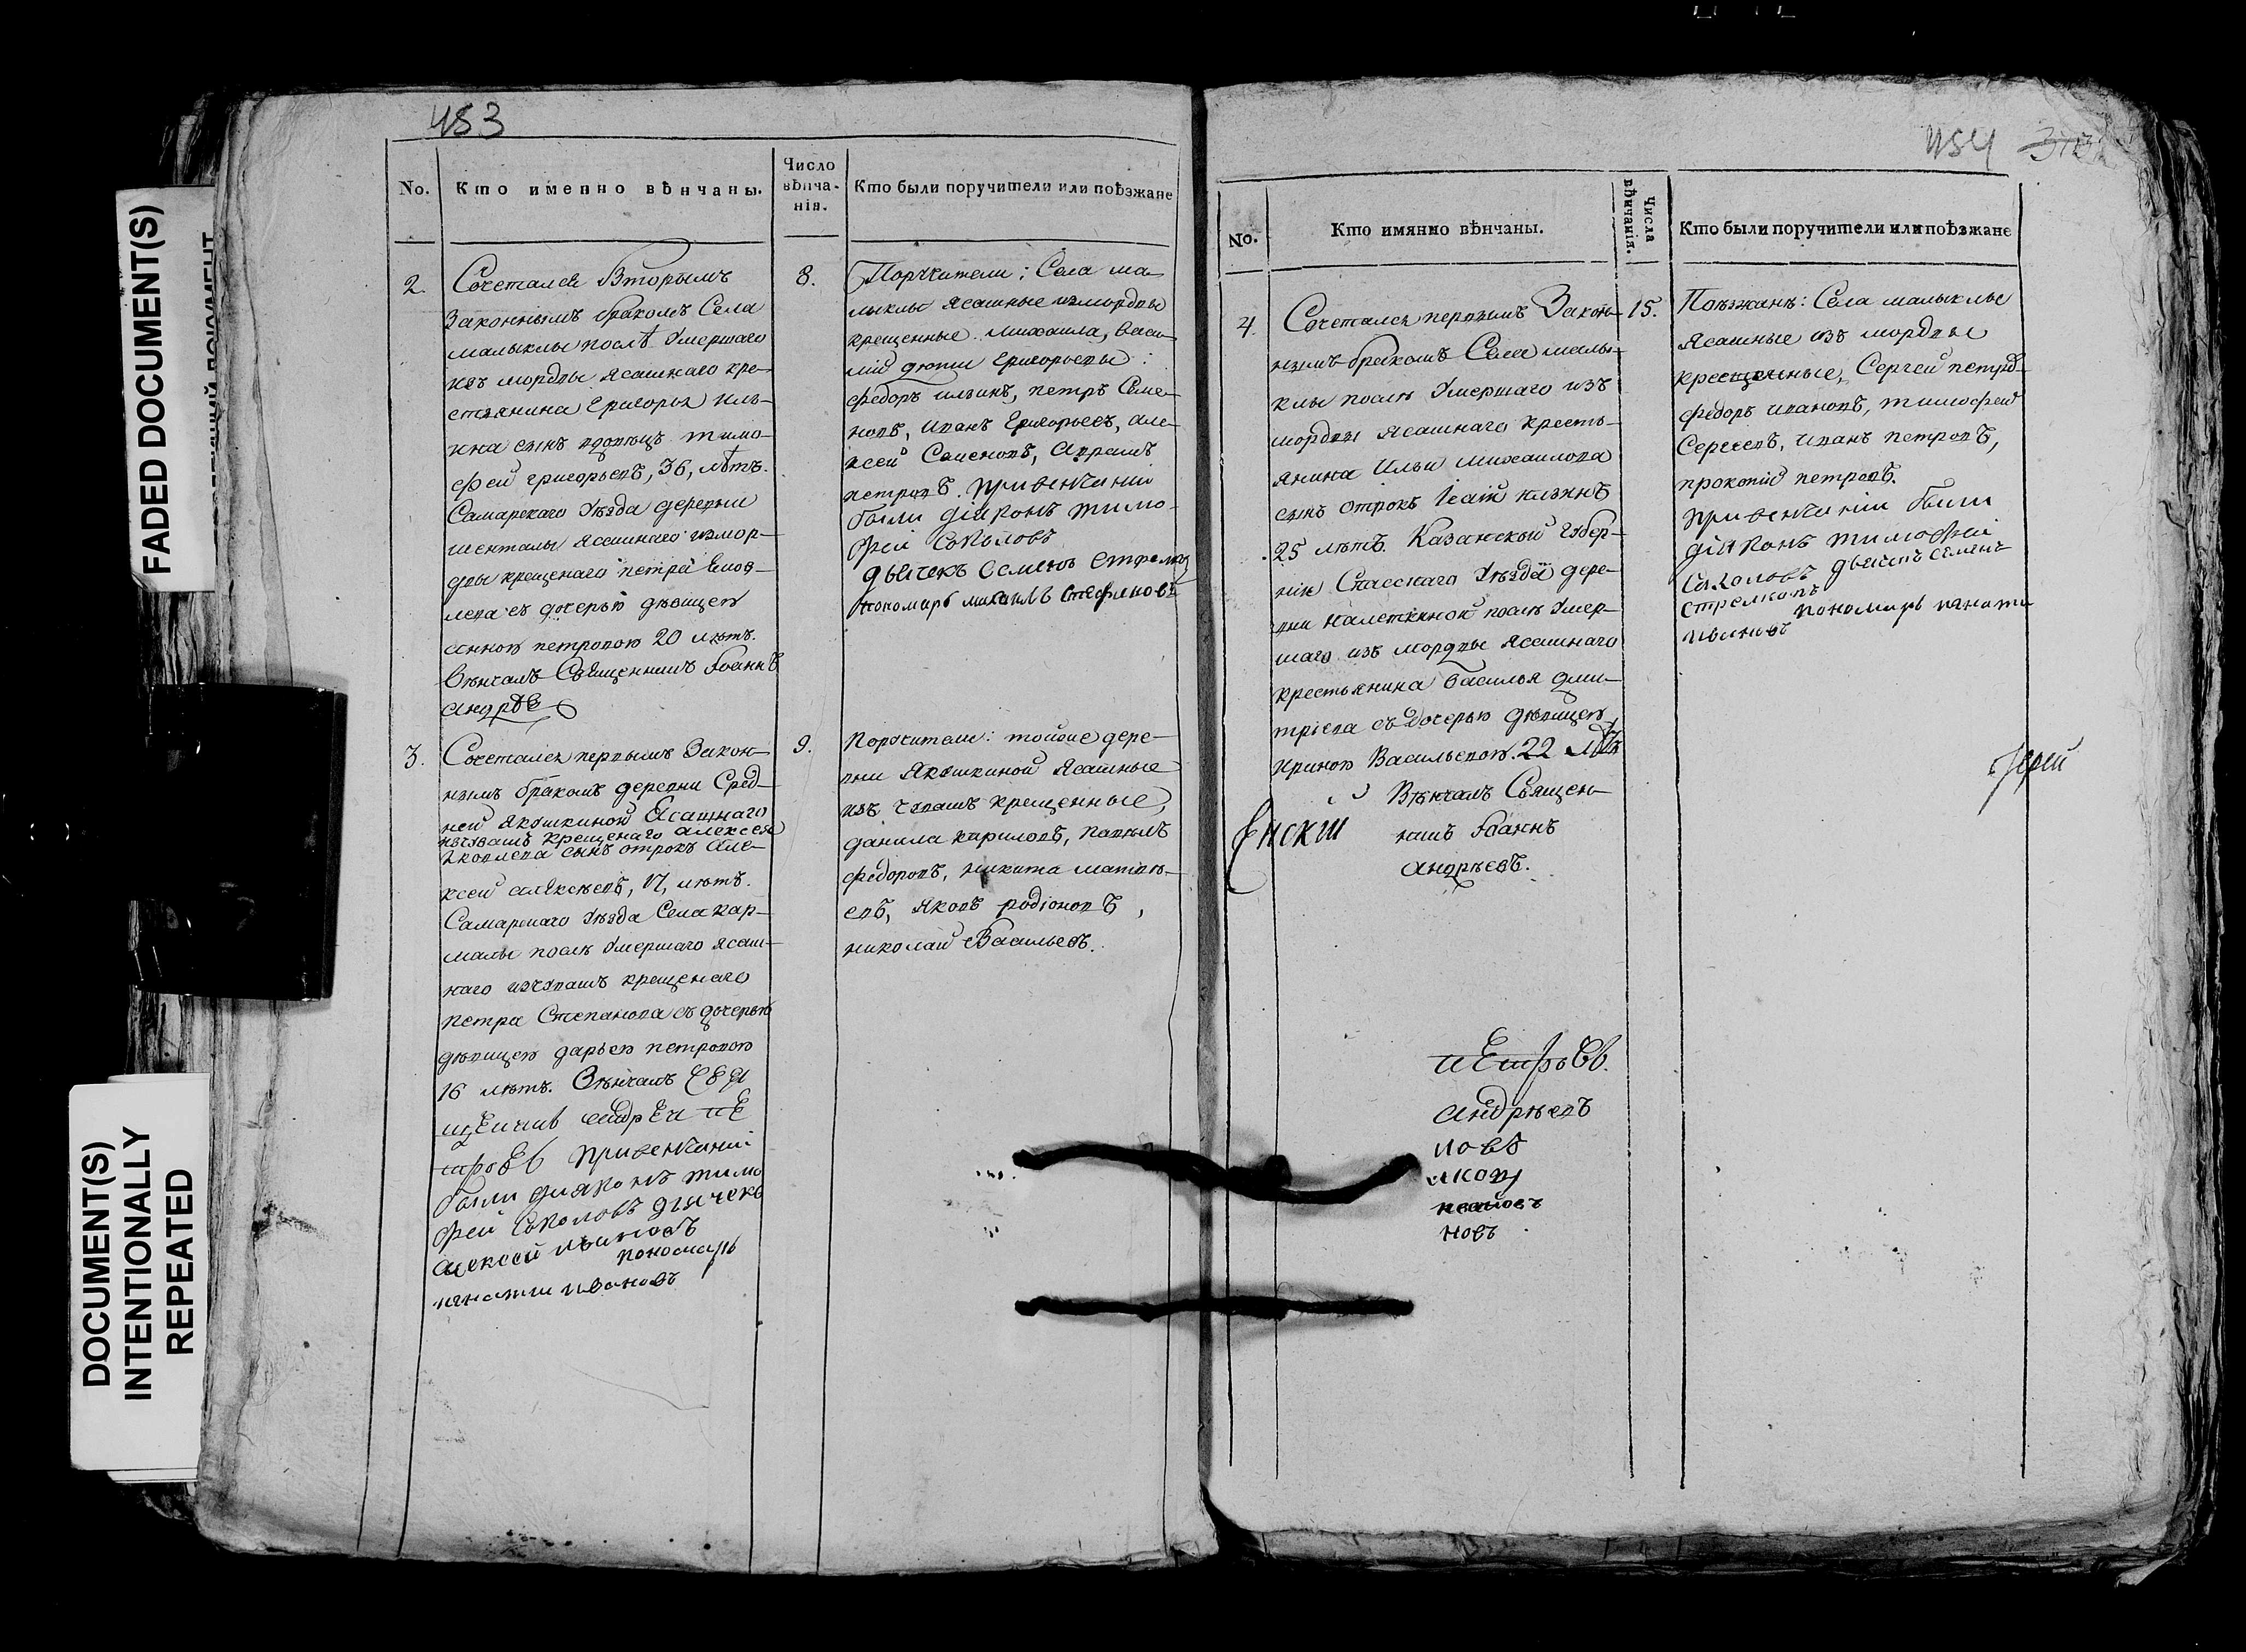 483
No.
Кто именно вѣнчаны.
Число
вѣнча-
нія.
Кто были поручители или поѣзжане
2.
Сочетался Вторымъ
Законнымъ бракомъ Села
малыклы послѣ Умершаго
изъ мордвы ясашнаго кре-
стьянина Григорья Иль-
ина сынъ вдовецъ тимо-
фей григорьевъ, 36, лѣтъ.
Самарскаго Уѣзда деревни
шенталы ясашнаго измор-
двы крещенаго петра
съ дочерью дѣвицею
анною петровою 20 лѣтъ.
Вѣнчалъ Священникъ Іоаннъ
андрѣевъ
8.
Поручители: Села ма-
лыклы ясашные измордвы
крещенные Михаила, Васи-
лій дюпи Григорьевы:
федоръ ильинъ, петръ Семе-
новъ, иванъ Григорьевъ, але-
ксей Семеновъ, Аврамъ
петровъ. привенчаніи
были діяконъ тимо-
фей Соколовъ
дьячекъ Семенъ Стрелковъ
пономарь михаилъ Стефановъ
3.
Сочетался первымъ Закон-
нымъ бракомъ деревни Сред-
ней якушкиной Ясашнаго
изчувашъ крещенаго алексея
яковлева сынъ отрокъ але-
ксей алексѣевъ, 17, лѣтъ.
Самарскаго Уѣзда Села кар-
малы послѣ Умершаго ясаш-
наго изчувашъ крещенаго
петра Степанова съ дочерью
дѣвицею дарьею петровою
16 лѣтъ. Вѣнчалъ Свя
щенникъ андрей пе
тровъ привенчаніи
были дияконъ тимо
фей Соколовъ дьячекъ
алексей ивановъ
пономарь
игнатии ивановъ
9.
Поручители: тойже дере-
вни якушкиной ясашные
изъ чувашъ крещенные,
данила кириловъ, павилъ
федоровъ, никита матвѣ-
евъ, яковъ родіоновъ,
николай Васильевъ.
484
No.
Кто имянно вѣнчаны.
Числа
вѣнчанія.
Кто были поручители или поѣзжане
4.
Сочетался первымъ Закон-
нымъ бракомъ Села малы-
клы послѣ Умершаго изъ
мордвы ясашнаго кресть-
янина Ильи Михаилова
сынъ отрокъ Ісаій ильинъ
25 лѣтъ. Казанской губер-
ніи Спасскаго Уѣзда дере-
вни налеткиной послѣ Умер-
шаго изъ мордвы ясашнаго
крестьянина Василья дми-
тріева съ дочерью дѣвицею
ириною Васильевою 22 лѣтъ
Вѣнчалъ Священ-
никъ Іоаннъ
андрѣевъ.
15.
Поѣзжанѣ: Села малыклы
ясашные изъ мордвы
крещенные, Сергей петровъ
федоръ ивановъ, тимофей
Сергеевъ, иванъ петровъ,
прокопій петровъ.
привенчаніи были
діяконъ тимофей
Соколовъ дьячекъ Семенъ
Стрелковъ
пономарь игнати
ивановъ
Іерей
петровъ.
андрѣевъ
ловъ
лковъ
новъ